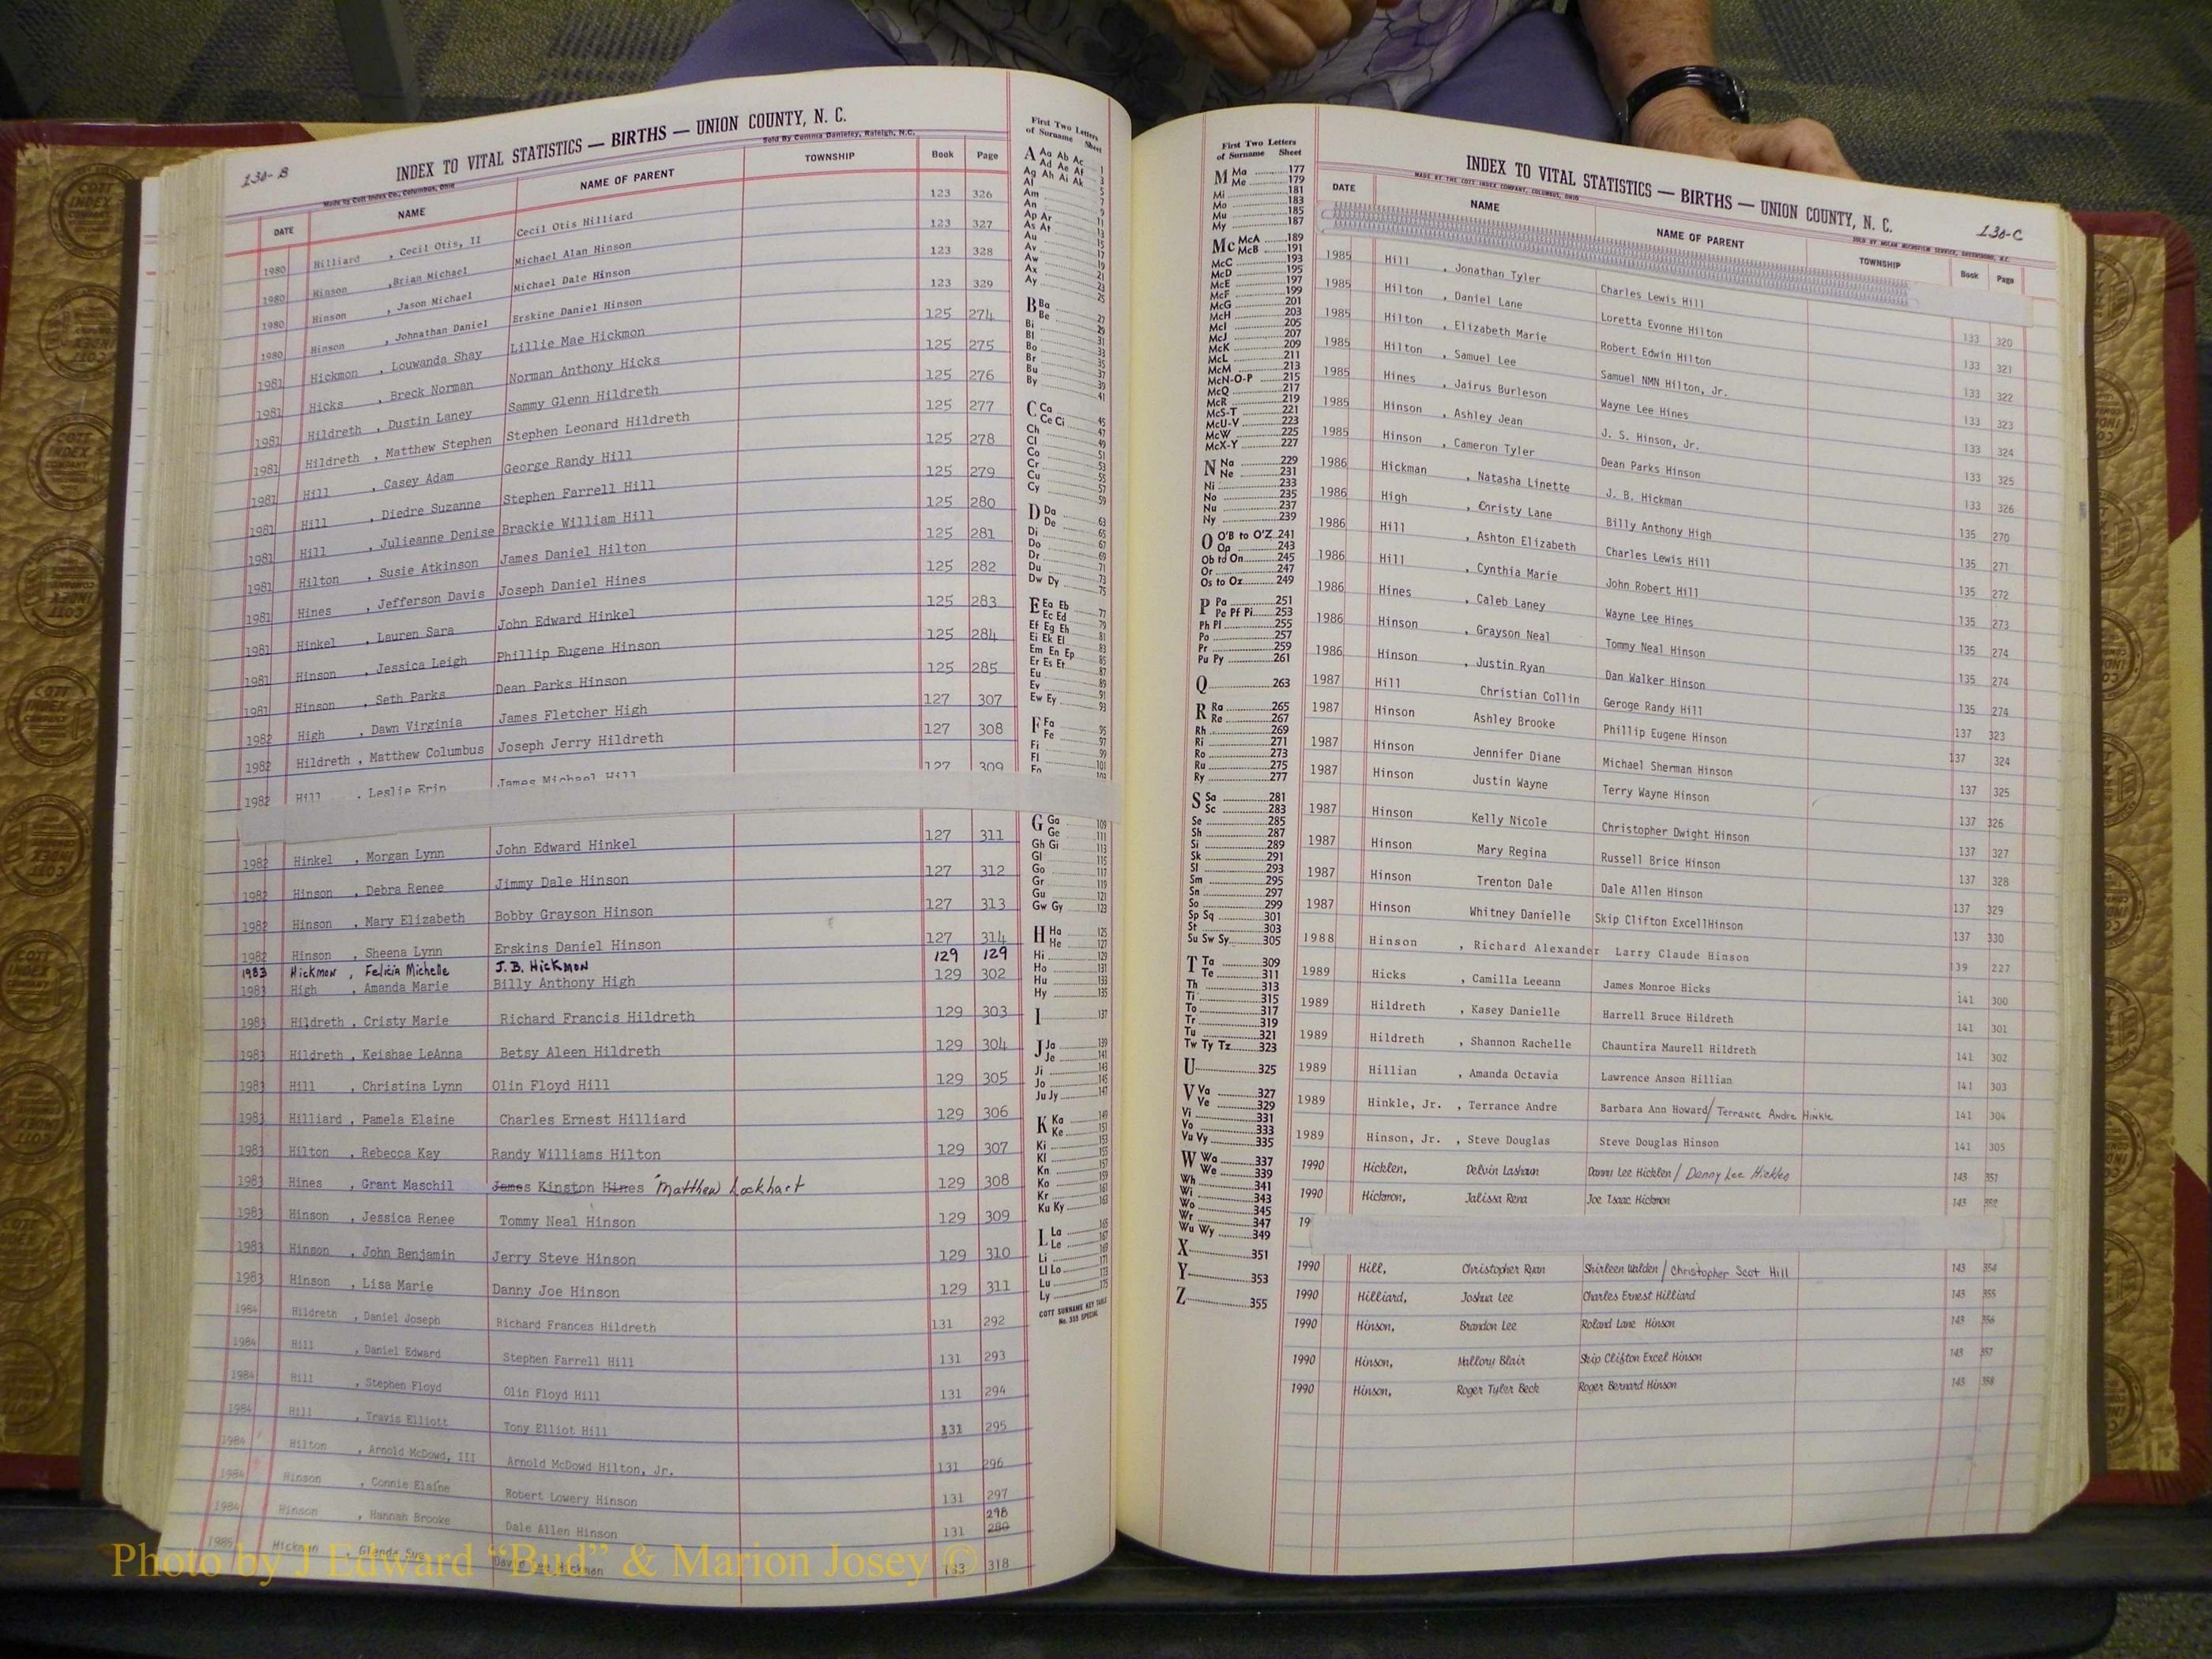 130-B
INDEX TO VITAL STATISTICS — BIRTHS — UNION COUNTY, N. C.
Made by Cott Index Co., Columbus, Ohio
Sold By Comma Danieley, Raleigh, N.C.
DATE NAME NAME OF PARENT TOWNSHIP Book Page
1980 Hilliard , Cecil Otis, II Cecil Otis Hilliard 123 326
1980 Hinson ,Brian Michael Michael Alan Hinson 123 327
1980 Hinson , Jason Michael Michael Dale Hinson 123 328
1980 Hinson , Johnathan Daniel Erskine Daniel Hinson 123 329
1981 Hickmon , Louwanda Shay Lillie Mae Hickmon 125 274
1981 Hicks , Breck Norman Norman Anthony Hicks 125 275
1981 Hildreth , Dustin Laney Sammy Glenn Hildreth 125 276
1981 Hildreth , Matthew Stephen Stephen Leonard Hildreth 125 277
1981 Hill , Casey Adam George Randy Hill 125 278
1981 Hill , Diedre Suzanne Stephen Farrell Hill 125 279
1981 Hill , Julieanne Denise Brackie William Hill 125 280
1981 Hilton , Susie Atkinson James Daniel Hilton 125 281
1981 Hines , Jefferson Davis Joseph Daniel Hines 125 282
1981 Hinkel , Lauren Sara John Edward Hinkel 125 283
1981 Hinson , Jessica Leigh Phillip Eugene Hinson 125 284
1981 Hinson , Seth Parks Dean Parks Hinson 125 285
1982 High , Dawn Virginia James Fletcher High 127 307
1982 Hildreth , Matthew Columbus Joseph Jerry Hildreth 127 308
1982 Hill , Leslie Erin James Michael Hill 127 309
1982 Hinkel , Morgan Lynn John Edward Hinkel 127 311
1982 Hinson , Debra Renee Jimmy Dale Hinson 127 312
1982 Hinson , Mary Elizabeth Bobby Grayson Hinson 127 313
1982 Hinson , Sheena Lynn Erskins Daniel Hinson 127 314
1983 Hickmon , Felicia Michelle J.B. Hickmon 129 129
1983 High , Amanda Marie Billy Anthony High 129 302
1983 Hildreth , Cristy Marie Richard Francis Hildreth 129 303
1983 Hildreth , Keishae LeAnna Betsy Aleen Hildreth 129 304
1983 Hill , Christina Lynn Olin Floyd Hill 129 305
1983 Hilliard , Pamela Elaine Charles Ernest Hilliard 129 306
1983 Hilton , Rebecca Kay Randy Williams Hilton 129 307
1983 Hines , Grant Maschil James Kinston Hines Matthew Lockhart 129 308
1983 Hinson , Jessica Renee Tommy Neal Hinson 129 309
1983 Hinson , John Benjamin Jerry Steve Hinson 129 310
1983 Hinson , Lisa Marie Danny Joe Hinson 129 311
1984 Hildreth , Daniel Joseph Richard Frances Hildreth 131 292
1984 Hill , Daniel Edward Stephen Farrell Hill 131 293
1984 Hill , Stephen Floyd Olin Floyd Hill 131 294
1984 Hill , Travis Elliott Tony Elliot Hill 131 295
1984 Hilton , Arnold McDowd, III Arnold McDowd Hilton, Jr. 131 296
1984 Hinson , Connie Elaine Robert Lowery Hinson 131 297
298
1984 Hinson , Hannah Brooke Dale Allen Hinson 131 280
1985 Hickman , Glenda Sue David Hickman 133 318
First Two Letters
of Surname Sheet
A Aa Ab Ac 1
Ad Ae Af 3
Ag Ah Ai Ak 5
Al 7
Am 9
An 11
Ap Ar 13
As At 15
Au 17
Av 19
Aw 21
Ax 23
Ay 25
B Ba 27
Be 29
Bi 31
Bl 33
Bo 35
Br 37
Bu 39
By 41
C Ca 45
Ce Ci 47
Ch 49
Cl 51
Co 53
Cr 55
Cu 57
Cy 59
D Da 63
De 65
Di 67
Do 69
Dr 71
Du 73
Dw Dy 75
E Ea Eb 77
Ec Ed 79
Ef Eg Eh 81
Ei Ek El 83
Em En Ep 85
Er Es Et 87
Eu 89
Ev 91
Ew Ey 93
F Fa 95
Fe 97
Fi 99
Fl 101
Fo 103
G Ga 109
Ge 111
Gh Gi 113
Gl 115
Go 117
Gr 119
Gu 121
Gw Gy 123
H Ha 125
He 127
Hi 129
Ho 131
Hu 133
Hy 135
I 137
J Ja 139
Je 141
Ji 143
Jo 145
Ju Jy 147
K Ka 149
Ke 151
Ki 153
Kl 155
Kn 157
Ko 159
Kr 161
Ku Ky 163
L La 165
Le 167
Li 169
Ll Lo 171
Lu 173
Ly 175
COTT SURNAME KEY TABLE
No. 355 SPECIAL
First Two Letters
of Surname Sheet
M Ma 177
Me 179
Mi 181
Mo 183
Mu 185
My 187
Mc McA 189
McB 191
McC 193
McD 195
McE 197
McF 199
McG 201
McH 203
McI 205
McJ 207
McK 209
McL 211
McM 213
McN-O-P 215
McQ 217
McR 219
McS-T 221
McU-V 223
McW 225
McX-Y 227
N Na 229
Ne 231
Ni 233
No 235
Nu 237
Ny 239
O O'B to O'Z 241
Oa 243
Ob to On 245
Or 247
Os to Oz 249
P Pa 251
Pe Pf Pi 253
Ph Pl 255
Po 257
Pr 259
Pu Py 261
Q 263
R Ra 265
Re 267
Rh 269
Ri 271
Ro 273
Ru 275
Ry 277
S Sa 281
Sc 283
Se 285
Sh 287
Si 289
Sk 291
Sl 293
Sm 295
Sn 297
So 299
Sp Sq 301
St 303
Su Sw Sy 305
T Ta 309
Te 311
Th 313
Ti 315
To 317
Tr 319
Tu 321
Tw Ty Tz 323
U 325
V Va 327
Ve 329
Vi 331
Vo 333
Vu Vy 335
W Wa 337
We 339
Wh 341
Wi 343
Wo 345
Wr 347
Wu Wy 349
X 351
Y 353
Z 355
INDEX TO VITAL STATISTICS — BIRTHS — UNION COUNTY, N. C.
130-C
MADE BY THE COTT INDEX COMPANY, COLUMBUS, OHIO
SOLD BY MCLAN MICROFILM SERVICE, GREENSBORO, N.C.
DATE NAME NAME OF PARENT TOWNSHIP Book Page
1985 Hill , Jonathan Tyler Charles Lewis Hill 133 320
1985 Hilton , Daniel Lane Loretta Evonne Hilton 133 321
1985 Hilton , Elizabeth Marie Robert Edwin Hilton 133 322
1985 Hilton , Samuel Lee Samuel NMN Hilton, Jr. 133 323
1985 Hines , Jairus Burleson Wayne Lee Hines 133 324
1985 Hinson , Ashley Jean J. S. Hinson, Jr. 133 325
1985 Hinson , Cameron Tyler Dean Parks Hinson 133 326
1986 Hickman , Natasha Linette J. B. Hickman 135 270
1986 High , Christy Lane Billy Anthony High 135 271
1986 Hill , Ashton Elizabeth Charles Lewis Hill 135 272
1986 Hill , Cynthia Marie John Robert Hill 135 273
1986 Hines , Caleb Laney Wayne Lee Hines 135 274
1986 Hinson , Grayson Neal Tommy Neal Hinson 135 274
1986 Hinson , Justin Ryan Dan Walker Hinson 135 274
1987 Hill Christian Collin Geroge Randy Hill 137 323
1987 Hinson Ashley Brooke Phillip Eugene Hinson 137 324
1987 Hinson Jennifer Diane Michael Sherman Hinson 137 325
1987 Hinson Justin Wayne Terry Wayne Hinson 137 326
1987 Hinson Kelly Nicole Christopher Dwight Hinson 137 327
1987 Hinson Mary Regina Russell Brice Hinson 137 328
1987 Hinson Trenton Dale Dale Allen Hinson 137 329
1987 Hinson Whitney Danielle Skip Clifton ExcellHinson 137 330
1988 Hinson , Richard Alexander Larry Claude Hinson 139 227
1989 Hicks , Camilla Leeann James Monroe Hicks 141 300
1989 Hildreth , Kasey Danielle Harrell Bruce Hildreth 141 301
1989 Hildreth , Shannon Rachelle Chauntira Maurell Hildreth 141 302
1989 Hillian , Amanda Octavia Lawrence Anson Hillian 141 303
1989 Hinkle, Jr. , Terrance Andre Barbara Ann Howard/ Terrance Andre Hinkle 141 304
1989 Hinson, Jr. , Steve Douglas Steve Douglas Hinson 141 305
1990 Hicklen, Delvin Lashaun Danny Lee Hicklen / Danny Lee Hicklen 143 351
1990 Hickmon, Jalissa Rena Joe Isaac Hickmon 143 352
19
1990 Hill, Christopher Ryan Shirleen Walden / Christopher Scot Hill 143 354
1990 Hilliard, Joshua Lee Charles Ernest Hilliard 143 355
1990 Hinson, Brandon Lee Roland Lane Hinson 143 356
1990 Hinson, Mallory Blair Skip Clifton Excel Hinson 143 357
1990 Hinson, Roger Tyler Beck Roger Bernard Hinson 143 358
Photo by J Edward “Bud” & Marion Josey ©